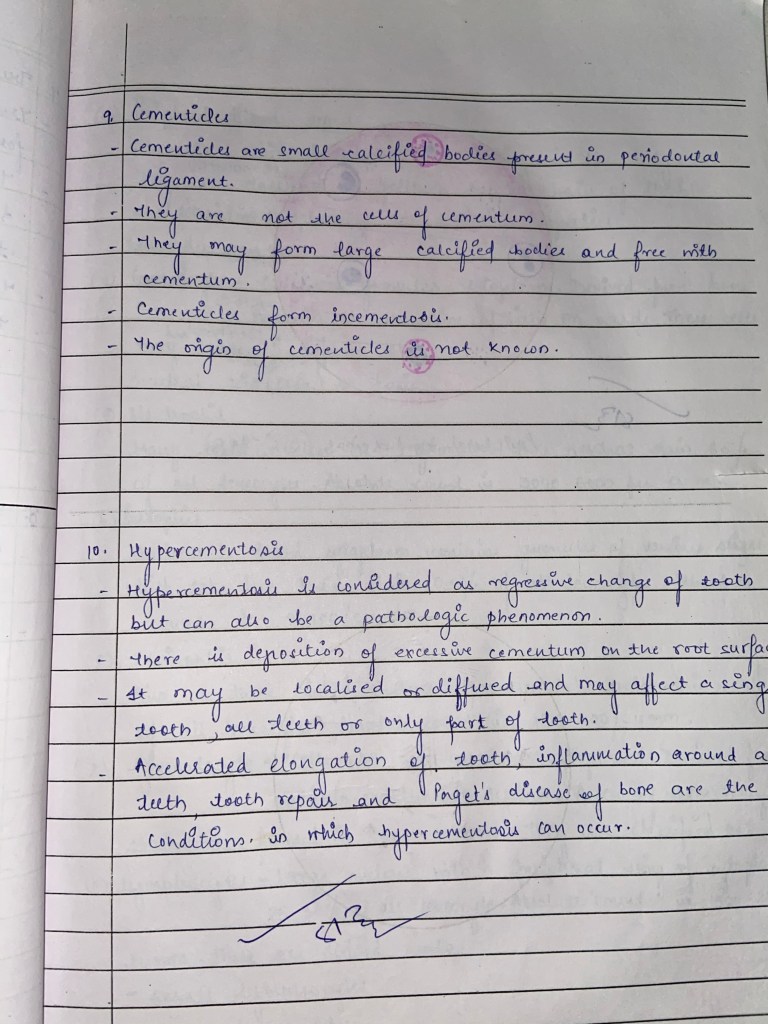 9. Cementicles
- Cementicles are small calcified bodies present in periodontal
ligament.
- They are not the cells of cementum.
- They may form large calcified bodies and free with
cementum.
- Cementicles form incementosis.
- The origin of cementicles is not known.
10. Hypercementosis
- Hypercementosis is considered as regressive change of tooth
but can also be a pathologic phenomenon.
- There is deposition of excessive cementum on the root surfa
- It may be localised or diffused and may affect a sing
tooth, all teeth or only part of tooth.
- Accelerated elongation of tooth, inflammation around a
teeth, tooth repair and Paget's disease of bone are the
conditions. in which hypercementosis can occur.